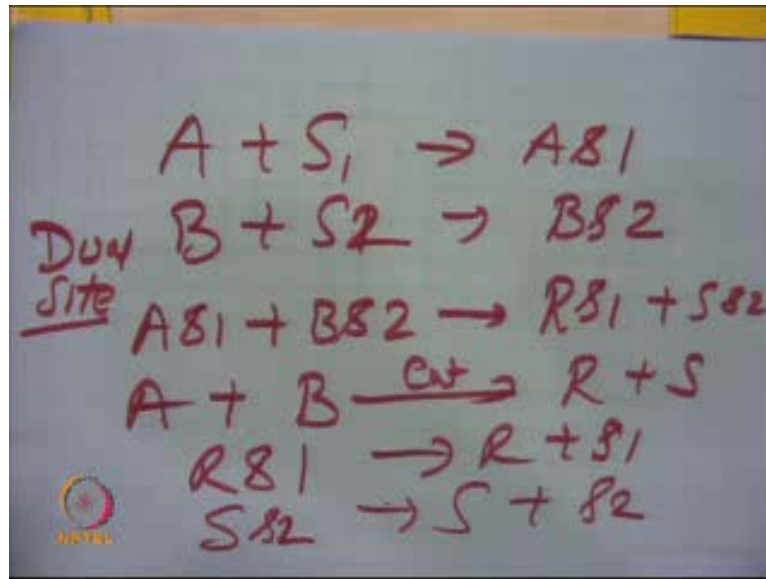 A + S1 → AS1
B + S2 → BS2
Dual
Site
AS1 + BS2 → RS1 + SS2
A + B —Cat→ R + S
RS1 → R + S1
SS2 → S + S2
NPTEL